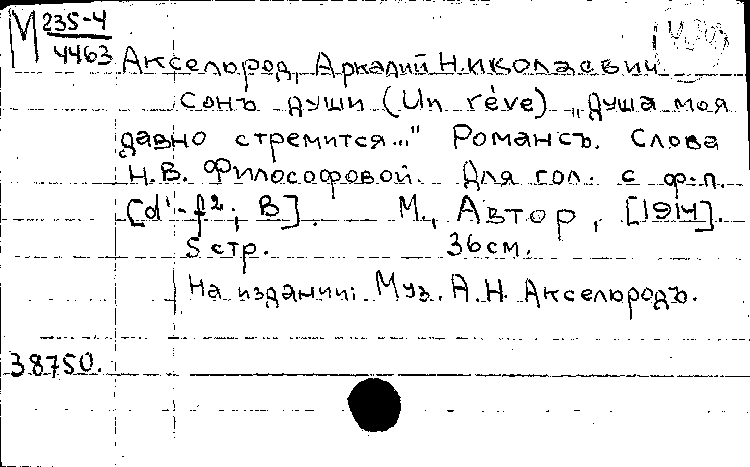 М 235-4
4463
Аксельрод, Аркадий Николаевич
Сонъ души (Un rêve) „Душа моя
давно стремится..." Романсъ. Слова
Н.В. Философовой. Для гол. с ф.-п.
[d¹-f²; B]. М., Автор, [1914].
5 стр. 36 см.
На издании: Муз. А.Н. Аксельродъ.
38750.